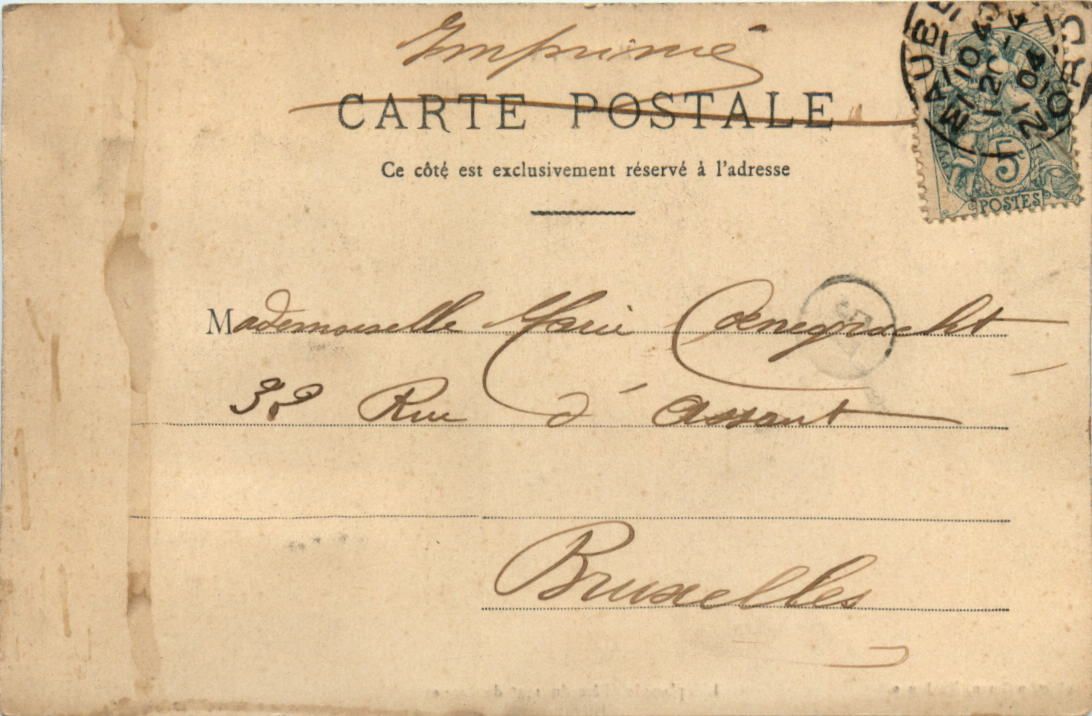 Imprimé
CARTE POSTALE
Ce côté est exclusivement réservé à l'adresse
MAUBE NORD
10 45
20 - 4
04
5
POSTES
Mademoiselle Marie Coenegracht
38 Rue d'Assaut
Bruxelles